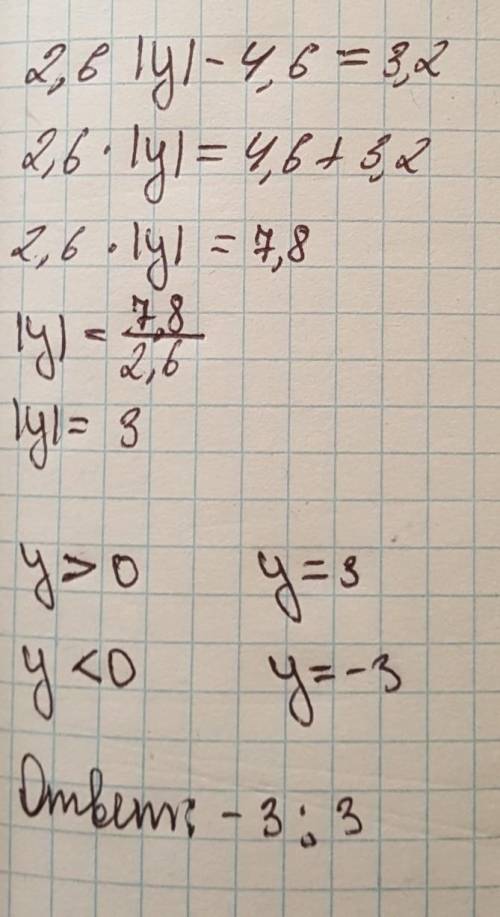 2,6 |y| - 4,6 = 3,2
2,6 · |y| = 4,6 + 3,2
2,6 · |y| = 7,8
|y| = 7,8/2,6
|y| = 3
y > 0 y = 3
y < 0 y = -3
Ответ: - 3 ; 3